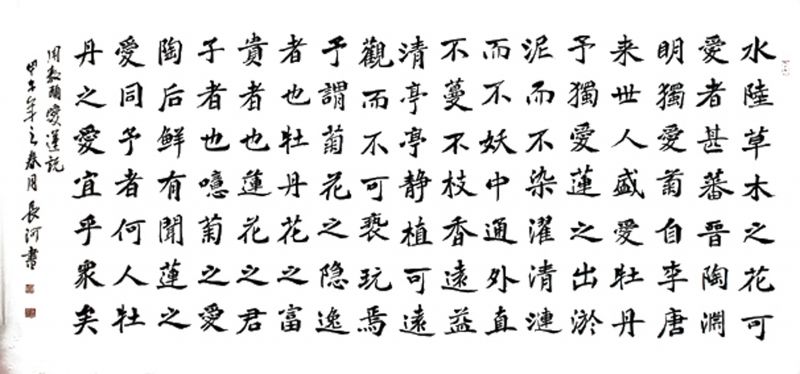 水陸草木之花可
愛者甚蕃晉陶淵
明獨愛菊自李唐
来世人盛愛牡丹
予獨愛蓮之出淤
泥而不染濯清漣
而不妖中通外直
不蔓不枝香遠益
清亭亭静植可遠
觀而不可亵玩焉
予謂菊花之隐逸
者也牡丹花之富
貴者也蓮花之君
子者也噫菊之愛
陶后鲜有聞蓮之
愛同予者何人牡
丹之愛宜乎衆矣
周敦頤愛蓮説
甲午年之春月長河書